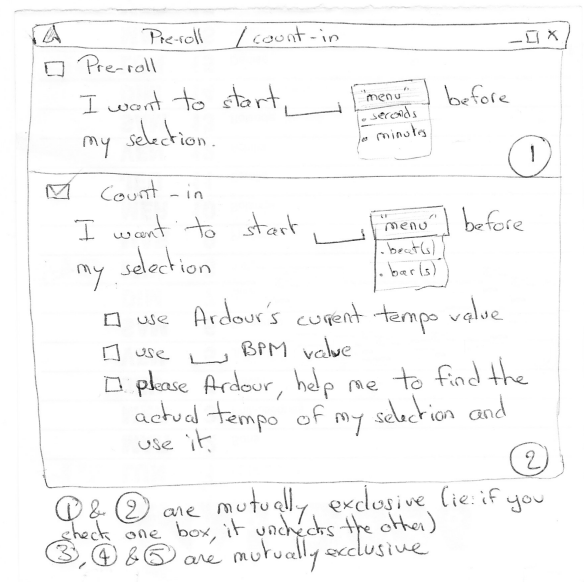 Pre-roll / count-in
Pre-roll
I want to start "menu" before
• seconds
• minutes
my selection.
1
Count-in
I want to start "menu" before
• beat(s)
• bar(s)
my selection
use Ardour's current tempo value
use BPM value
please Ardour, help me to find the
actual tempo of my selection and
use it.
2
1 & 2 are mutually exclusive (ie: if you
check one box, it unchecks the other)
3, 4 & 5 are mutually exclusive